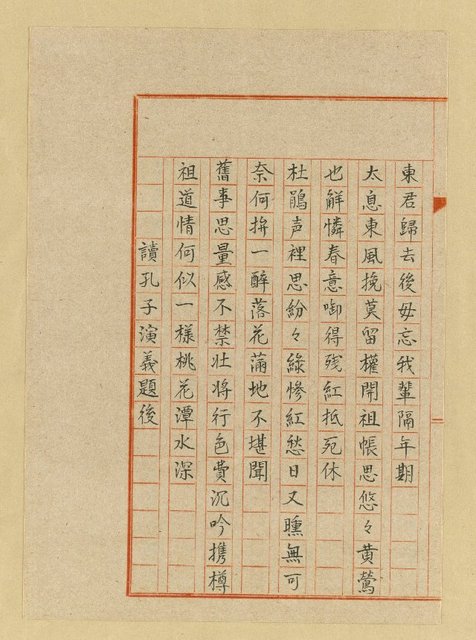 東君歸去後毋忘我輩隔年期
太息東風挽莫留權開祖帳思悠々黄鶯
也解憐春意啣得残紅抵死休
杜鵑声裡思紛々綠慘紅愁日又曛無可
奈何拚一醉落花滿地不堪聞
舊事思量感不禁壮将行色費沉吟携樽
祖道情何似一樣桃花潭水深
讀孔子演義題後